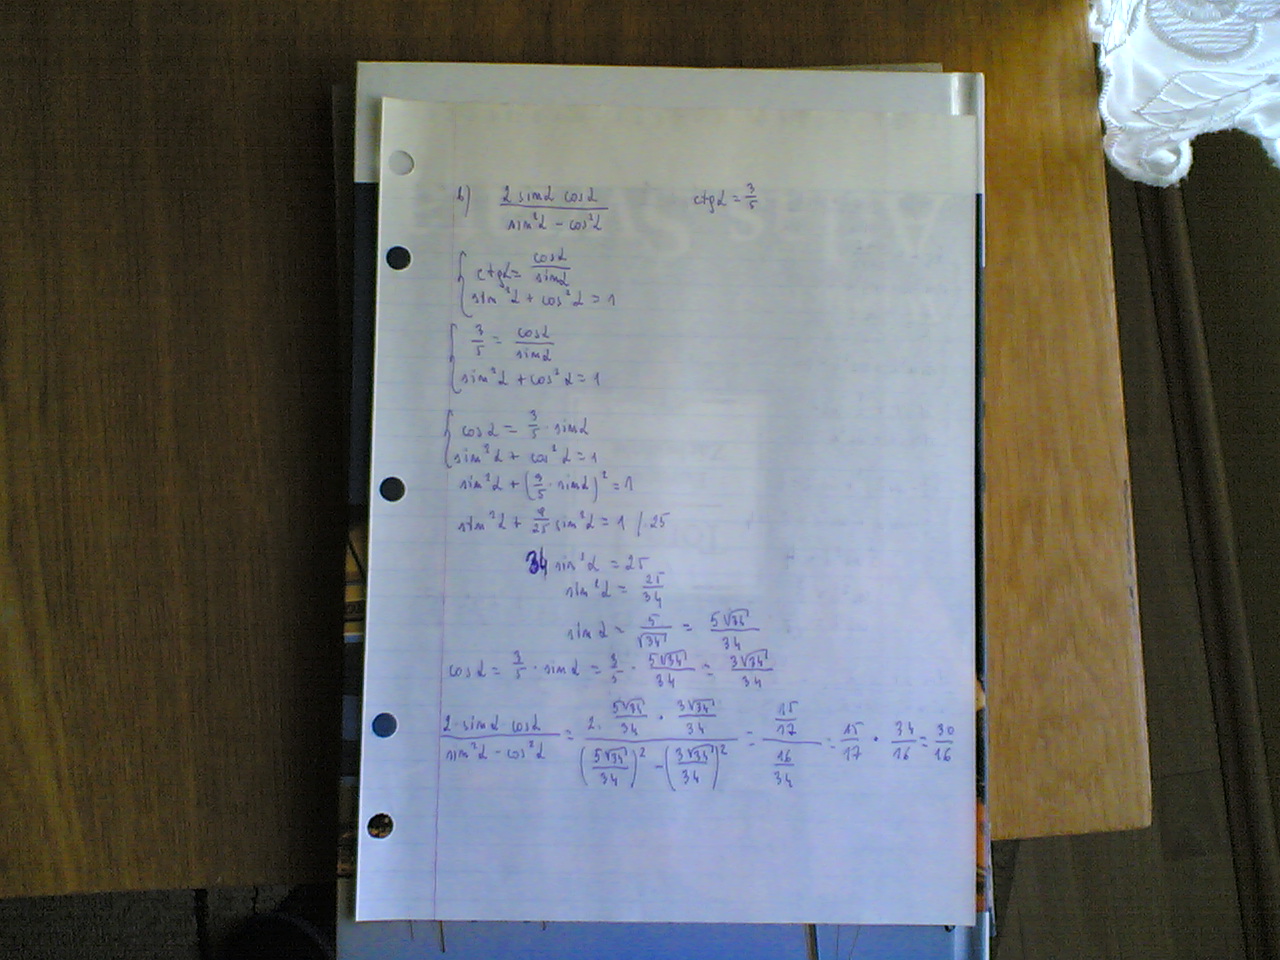 b) 2 sinα cosα / sin²α - cos²α ctgα = 3/5
{ ctgα = cosα / sinα
sin²α + cos²α = 1
{ 3/5 = cosα / sinα
sin²α + cos²α = 1
{ cosα = 3/5 · sinα
sin²α + cos²α = 1
sin²α + (3/5 · sinα)² = 1
sin²α + 9/25 sin²α = 1 / · 25
34 sin²α = 25
sin²α = 25/34
sinα = 5/√34 = 5√34/34
cosα = 3/5 · sinα = 3/5 · 5√34/34 = 3√34/34
2·sinα cosα / sin²α - cos²α = 2 · 5√34/34 · 3√34/34 / (5√34/34)² - (3√34/34)² = 15/17 / 16/34 = 15/17 · 34/16 = 30/16